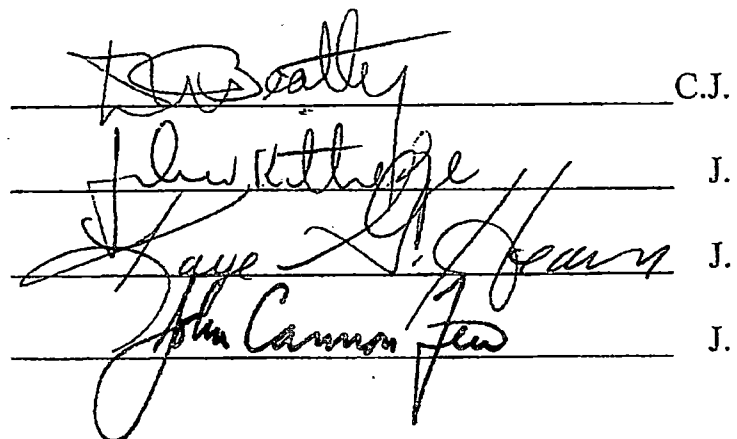 D W Beatty C.J.
John Kittredge J.
Kaye G. Hearn J.
John Cannon Few J.